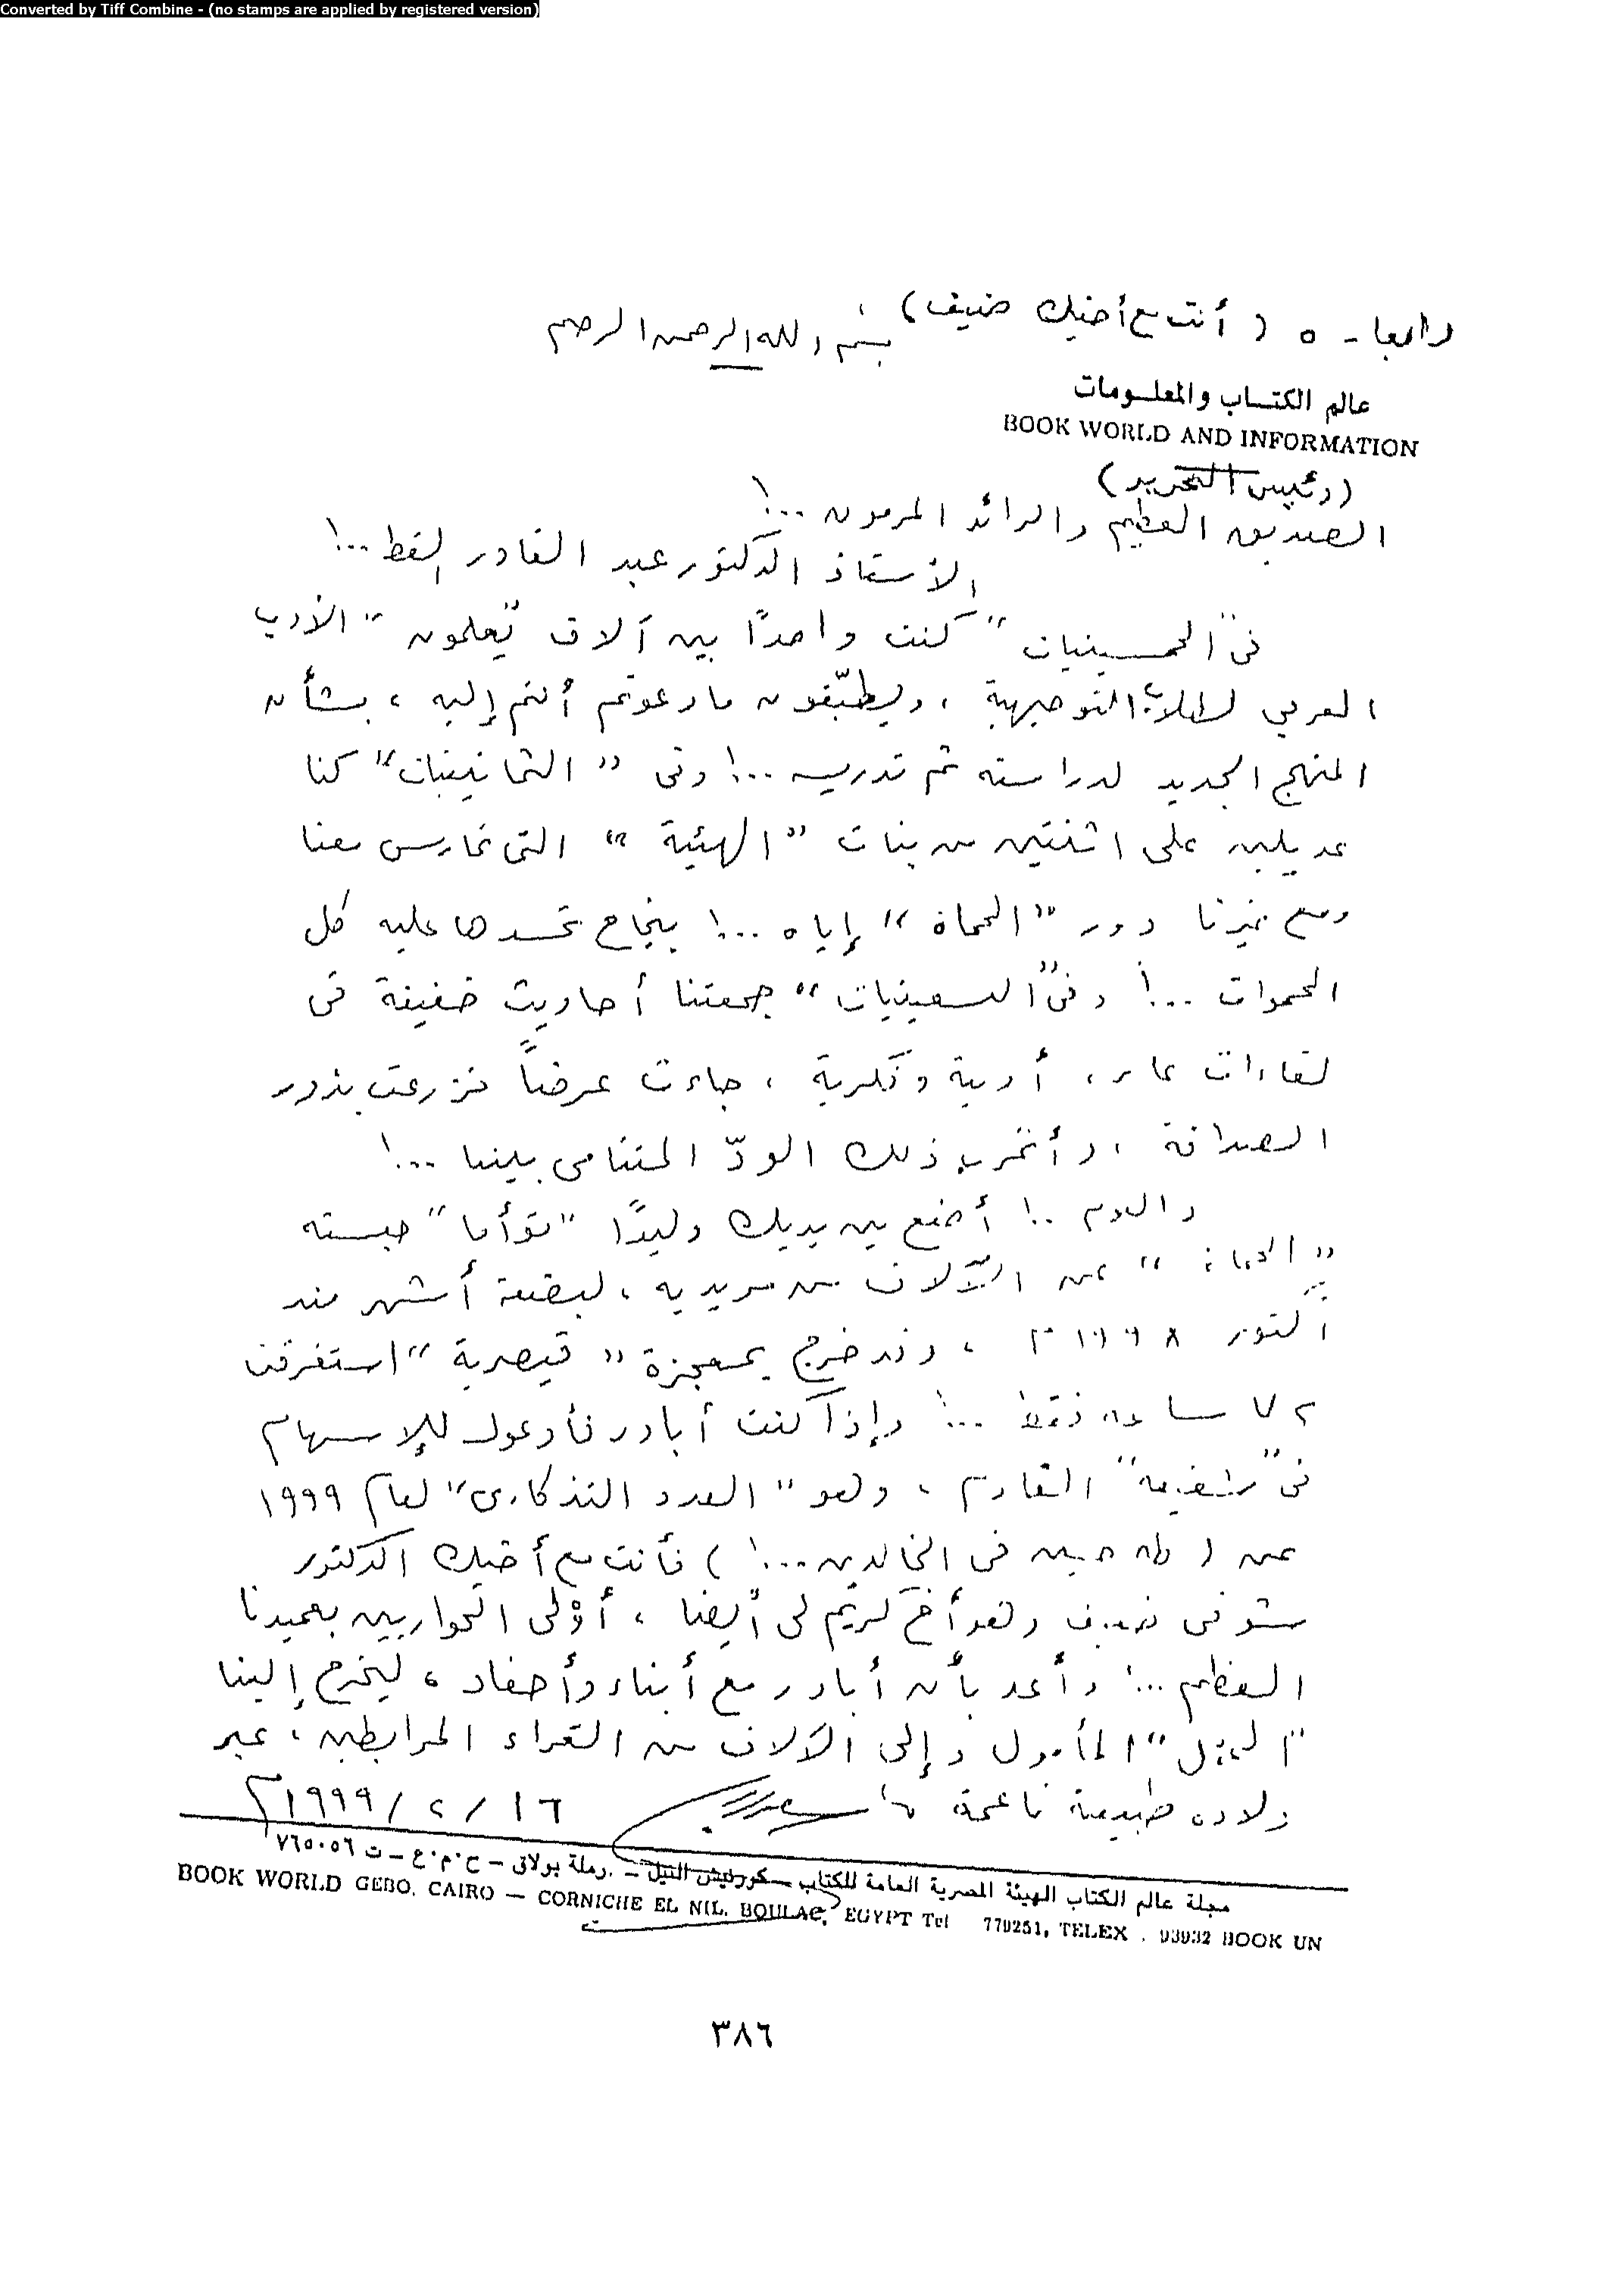 Converted by Tiff Combine - (no stamps are applied by registered version)
رابعا - ٥ ( أنت مع أخيك ضيف )
بسم الله الرحمن الرحيم
عالم الكتاب والمعلومات
BOOK WORLD AND INFORMATION
(رئيس التحرير)
الصديق العظيم والرائد المرموق ...!
الأستاذ الدكتور عبد القادر القط ...!
فى "الخمسينيات" كنت واحدًا بين آلاف يُعلمون "الأدب
العربي لطلاب التوجيهية ، ويطبّقون ما دعوتم أنتم إليه ، بشأن
المنهج الجديد لدراسته ثم تدريسه ...! وفى "الثمانينيات" كنا
عديلين على اثنتين من بنات "الهيئة" التى تمارس معنا
ومع غيرنا دور "الحماة" إياه ...! بنجاح تحسدها عليه كل
الحموات ...! وفى "التسعينيات" جمعتنا أحاديث خفيفة فى
لقاءات عابرة، أدبية وفكرية ، جاءت عرضاً فزرعت بذور
الصداقة ، وأثمرت ذلك الودّ المتنامى بيننا ...!
واليوم ..! أضع بين يديك وليدًا "توأما" حبسته
"الحماة" عن الآلاف من مريديه ، لبضعة أشهر منذ
أكتوبر ١٩٩٨ م ، وقد خرج بمعجزة "قيصرية" استغرقت
٧٢ ساعة فقط ...! وإذا كنت أبادر فأدعوك للإسهام
فى "شقيقه" القادم ، وهو "العدد التذكارى" لعام ١٩٩٩
عن ( طه حسين فى الخالدين ...! ) فأنت مع أخيك الدكتور
شوقى ضيف وهو أخ كريم لى أيضا ، أوْلى الحواريين بعميدنا
العظيم ...! وأعد بأن أبادر مع أبناء وأحفاد ، ليخرج إلينا
المأمول وإلى الآلاف من القراء المرابطين ، عبر
ولادة طبيعية ناعمة
١٦ / ٢ / ١٩٩٩ م
مجلة عالم الكتاب الهيئة المصرية العامة للكتاب - كورنيش النيل - رملة بولاق - ج.م.ع - ت ٧٦٥٠٥٦
BOOK WORLD GEBO. CAIRO — CORNICHE EL NIL. BOULAC, EGYPT Tel 779251, TELEX . 93932 BOOK UN
٣٨٦